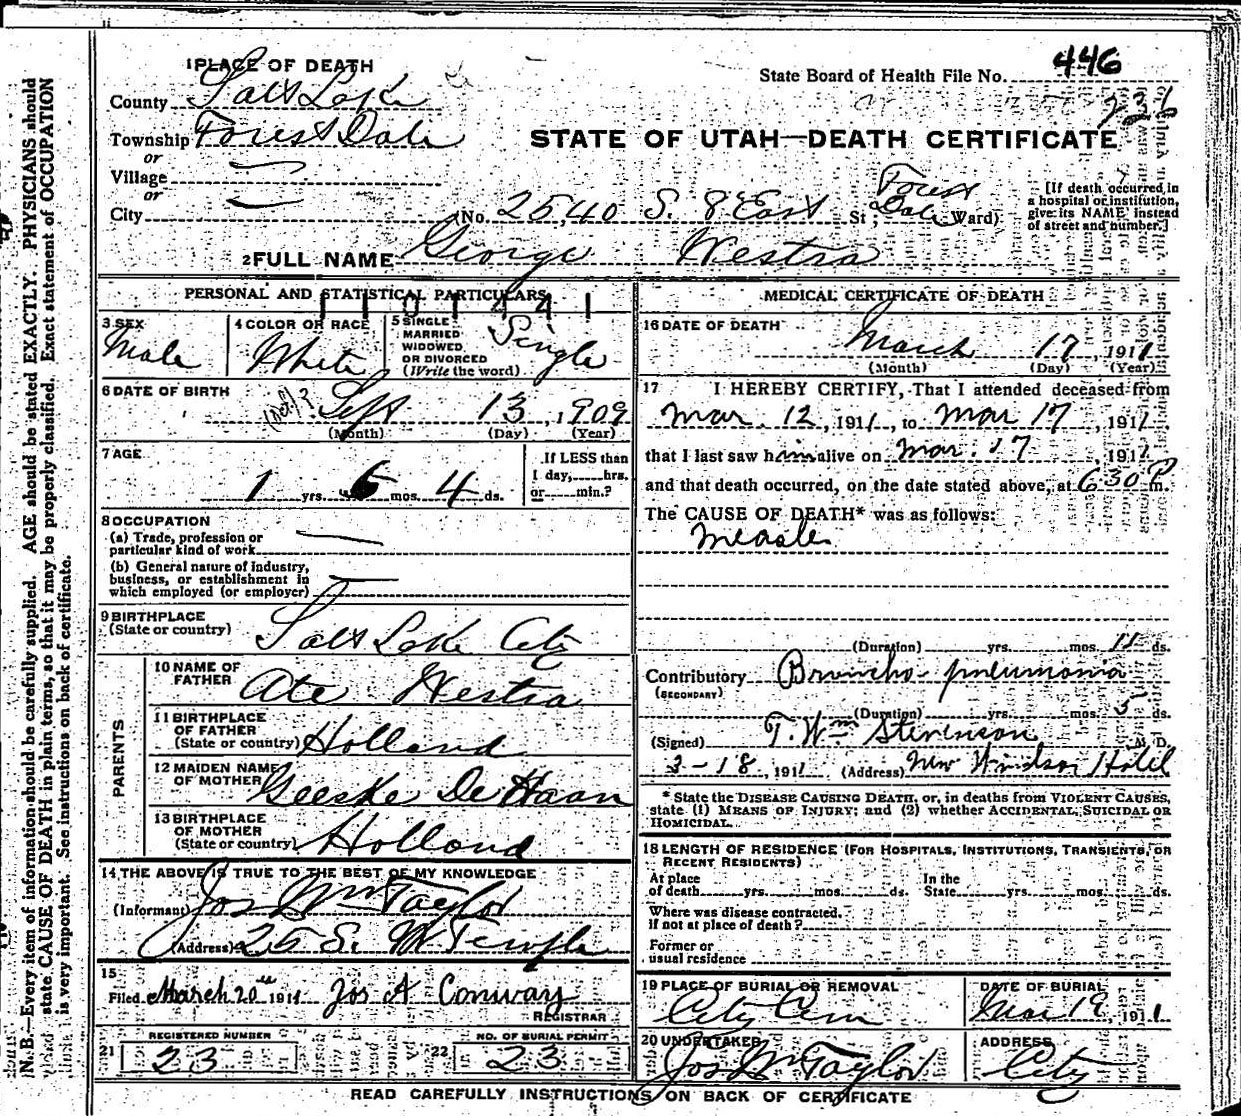 1 PLACE OF DEATH
State Board of Health File No. 446
236
County Salt Lake
Township Forest Dale
or
Village —
or
City —
STATE OF UTAH—DEATH CERTIFICATE
(No. 2540 S. 8 East St; Forest Dale Ward)
[If death occurred in a hospital or institution, give its NAME instead of street and number.]
2 FULL NAME George Westra
PERSONAL AND STATISTICAL PARTICULARS
1101441
3 SEX
Male
4 COLOR OR RACE
White
5 SINGLE
MARRIED
WIDOWED
OR DIVORCED
(Write the word)
Single
6 DATE OF BIRTH
Sept 13, 1909
(Month) (Day) (Year)
7 AGE
1 yrs. 6 mos. 4 ds.
If LESS than
1 day, hrs.
or min.?
8 OCCUPATION
(a) Trade, profession or
particular kind of work —
(b) General nature of industry,
business, or establishment in
which employed (or employer) —
9 BIRTHPLACE
(State or country)
Salt Lake City
PARENTS
10 NAME OF
FATHER
Ate Westra
11 BIRTHPLACE
OF FATHER
(State or country) Holland
12 MAIDEN NAME
OF MOTHER
Geeske De Haan
13 BIRTHPLACE
OF MOTHER
(State or country) Holland
14 THE ABOVE IS TRUE TO THE BEST OF MY KNOWLEDGE
(Informant) Jos Wm Taylor
(Address) 25 S. W Temple
15
Filed March 20th 1911 Jos A Conway
REGISTRAR
REGISTERED NUMBER
21 23
NO. OF BURIAL PERMIT
22 23
MEDICAL CERTIFICATE OF DEATH
16 DATE OF DEATH
March 17, 1911
(Month) (Day) (Year)
17 I HEREBY CERTIFY, That I attended deceased from
Mar. 12, 1911, to Mar 17, 1911,
that I last saw him alive on Mar. 17, 1911
and that death occurred, on the date stated above, at 6 30 P m.
The CAUSE OF DEATH* was as follows:
Measles
(Duration) yrs. mos. 11 ds.
Contributory Broncho-pneumonia
(SECONDARY)
(Duration) yrs. mos. 5 ds.
(Signed) T. Wm Stevenson M. D.
3-18, 1911 (Address) New Windsor Hotel
* State the DISEASE CAUSING DEATH, or, in deaths from VIOLENT CAUSES,
state (1) MEANS OF INJURY; and (2) whether ACCIDENTAL, SUICIDAL OR
HOMICIDAL.
18 LENGTH OF RESIDENCE (FOR HOSPITALS, INSTITUTIONS, TRANSIENTS, OR
RECENT RESIDENTS)
At place In the
of death yrs. mos. ds. State yrs. mos. ds.
Where was disease contracted.
if not at place of death?
Former or
usual residence
19 PLACE OF BURIAL OR REMOVAL
City Cem
DATE OF BURIAL
Mar 19, 1911
20 UNDERTAKER
Jos Wm Taylor
ADDRESS
City
READ CAREFULLY INSTRUCTIONS ON BACK OF CERTIFICATE
N. B.—Every item of information should be carefully supplied. AGE should be stated EXACTLY. PHYSICIANS should
state CAUSE OF DEATH in plain terms, so that it may be properly classified. Exact statement of OCCUPATION
is very important. See instructions on back of certificate.